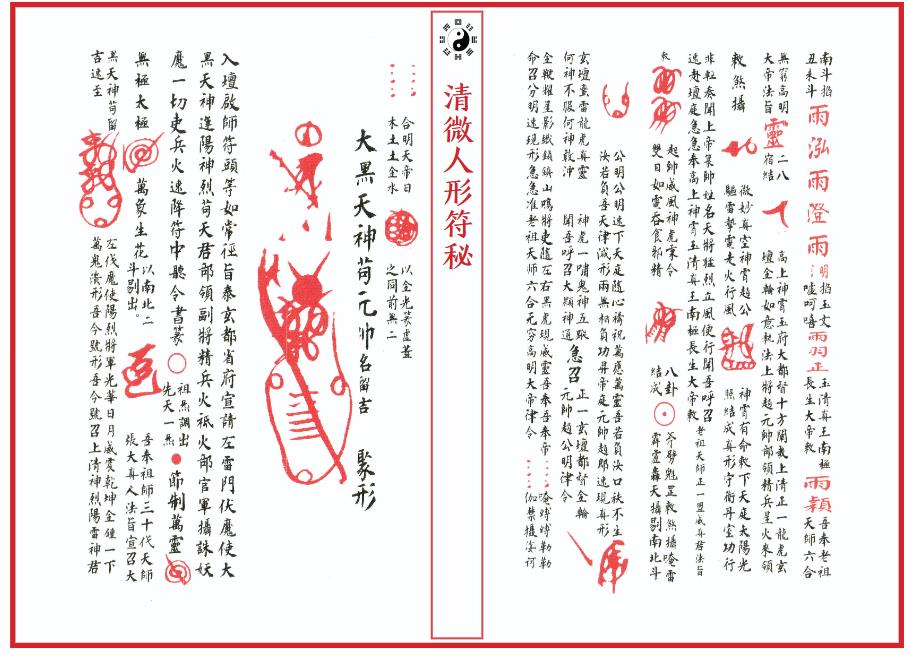 南斗掐
丑未斗
雨泓雨澄雨
明掐玉文
噓呵嘻
玉清真王南極
長生大帝敕
吾奉老祖
天師六合
無窮高明
大帝法旨
靈
二八
宿結
高上神霄玉府大都督十方開教上清正一龍虎玄
壇金輪如意執法上將趙元帥部領精兵星火來領
敕煞攝
微妙真空神霄趙公
驅雷掣電走火行風
神霄有命敕下天庭太陽光
照結成真形守衛丹室功行
非輕奏聞上帝某師姓名天將猛烈立風使行聞吾呼召
速赴壇庭急急奉高上神霄玉清真王南極長生大帝敕
老祖天師正一盟威真君法旨
敕
起帥威風神虎秉令
雙目如電吞食邪精
八卦
結成
斧劈魁罡敕煞攝唵雷
霹靂轟天攝剔南北斗
公明公明速下天庭隨心禱祝萬應萬靈吾若負汝口袂不生
汝若負吾天律滅形兩無相負功昇帝庭元帥趙郎速現真形
玄壇黑雷龍虎真靈
何神不服何神敢沖
神虎一嘯鬼神五蹤
聞吾呼召大顯神通
急召
正一玄壇都督金輪
元帥趙公明律令
金鞭耀星影鐵鎖鎮山鳴將吏隨左右黑虎現威靈吾奉帝
命召分明速現形急急准老祖天師六合无窮高明大帝律令
伽禁攝娑訶
清微人形符秘
合明天帝日
木土土金水
以金光篆虛蓋
之同前無二
大黑天神苟元帥名留吉
聚形
入壇啟師符頭等如常徑旨泰玄都省府宣請左雷門伏魔使大
黑天神進陽神烈苟天君部領副將精兵火祗火部官軍攝誅妖
魔一切吏兵火速降符中聽令書篆
祖炁調出
先天一炁
節制萬靈
無極太極
萬象生花
以南北二
斗剔出。
吾奉祖師三十代天師
張大真人法旨宣召大
黑天神苟留
吉速至
左伐魔使陽烈將軍光華日月威震乾坤金鍾一下
萬鬼潰形吾今號形吾今號召上清神烈陽雷神君